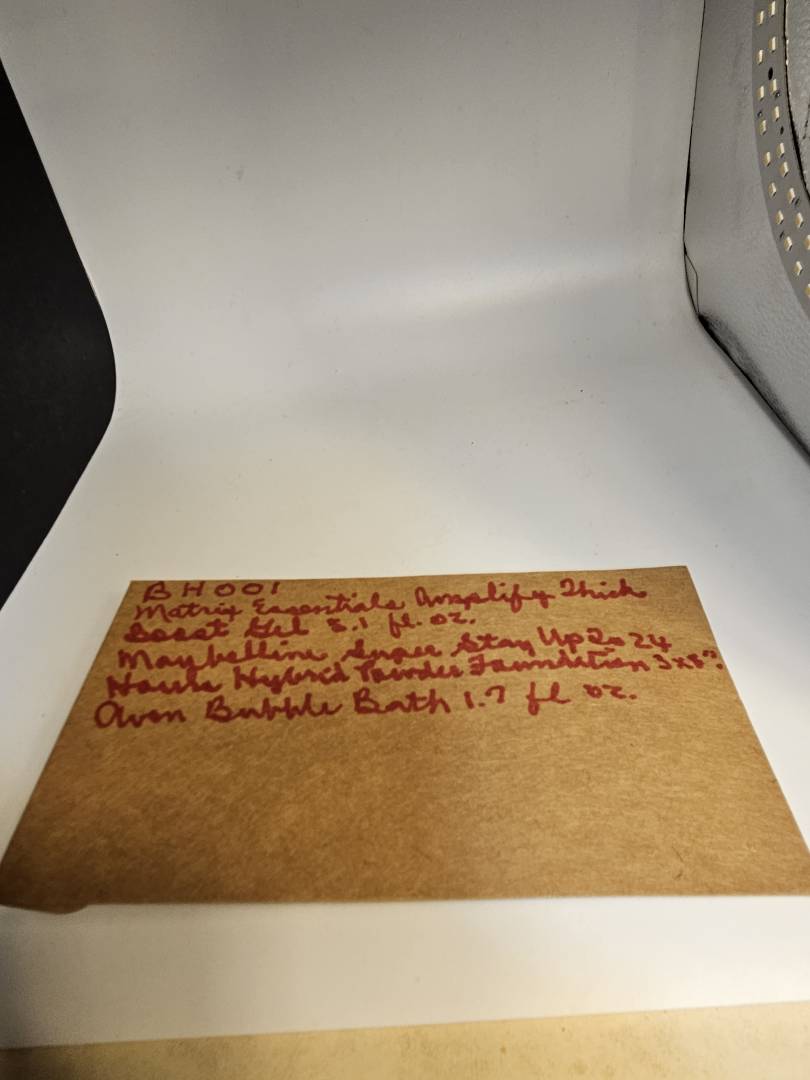 BH001
Matrix Essentials Amplify Thick
Boost Gel 5.1 fl. oz.
Maybelline Super Stay Up To 24
Hour Hybrid Powder Foundation
Avon Bubble Bath 1.7 fl oz.